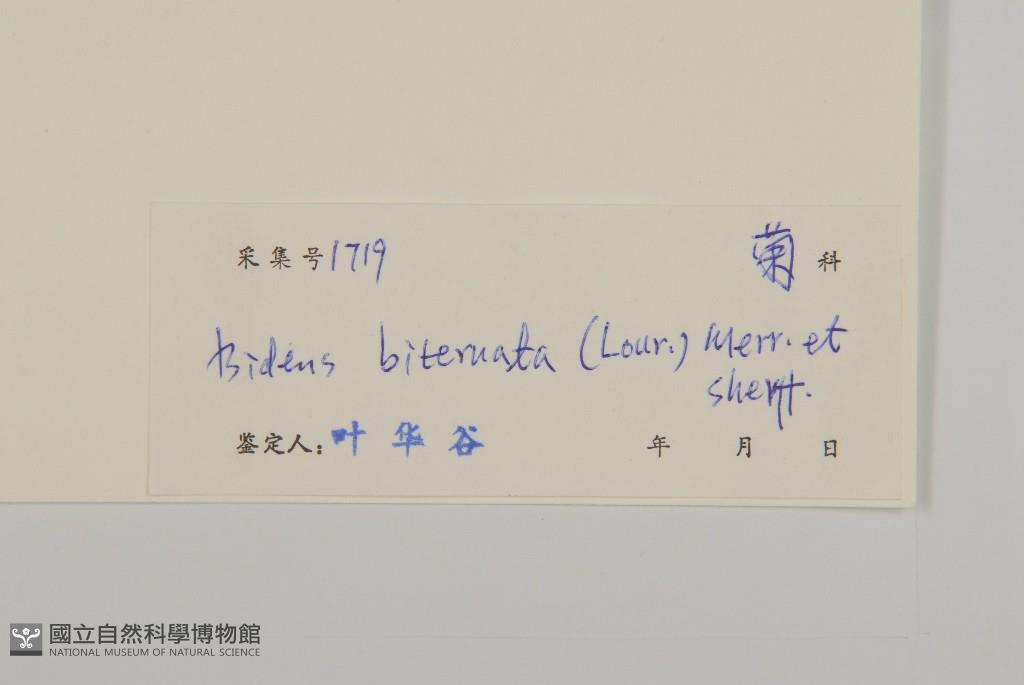 采集号1719 菊科
Bidens biternata (Lour.) Merr. et
sherff.
鉴定人：叶华谷 年 月 日
國立自然科學博物館
NATIONAL MUSEUM OF NATURAL SCIENCE